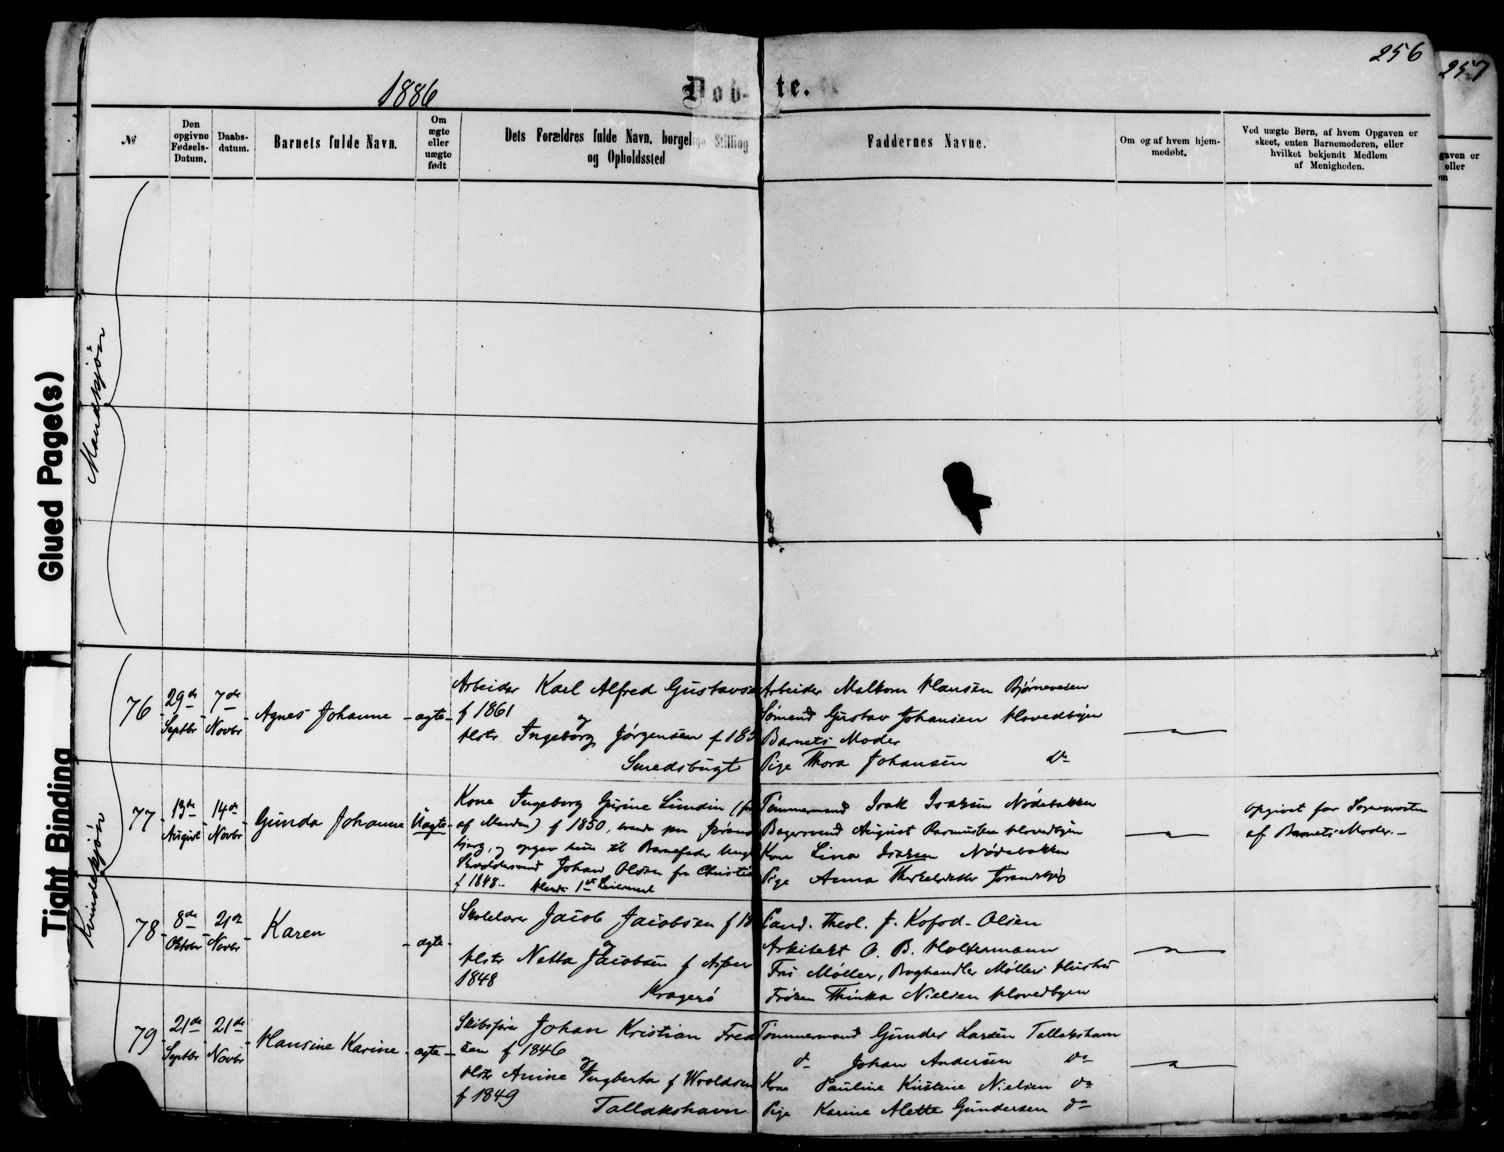 256
257
1886
Døbte.
№
Den opgivne Fødsels-Datum.
Daabs-datum.
Barnets fulde Navn.
Om ægte eller uægte født
Dets Forældres fulde Navn, borgerlige Stilling og Opholdssted
Faddernes Navne.
Om og af hvem hjem-medøbt.
Ved uægte Børn, af hvem Opgaven er skeet, enten Barnemoderen, eller hvilket bekjendt Medlem af Menigheden.
Mandkjøn
Glued Page(s)
Tight Binding
Kvindekjøn
76
29de Septbr
7de Novbr
Agnes Johanne
ægte
Arbeider Karl Alfred Gustavse
f 1861
og
Hstr Ingeborg Jørgensen f 185
Smedsbugt
Arbeider Malkom Hansen Bjørneveien
Sømand Gustav Johansen Hovedbyen
Barnets Moder
Pige Thora Johansen Do
77
13de August
14de Novbr
Gunda Johanne
Uægte
Kone Ingeborg Gurine Lundin
af Manden) f 1850,
og opgav ham til Barnefader
Johan Olsen fra Christia
f 1848. Hendes 1ste Leiermaal
Tømmermand Isak Isaksen Nødebakken
August Rasmussen Hovedbyen
Kone Lina Isaksen Nødebakken
Pige Anna
opgivet for Sognepresten
af Barnets Moder.
78
8de Oktober
21de Novbr
Karen
ægte
Skolelærer Jacob Jacobsen f 18
og
Hstr Netta Jacobsen f Asper
1848
Kragerø
Cand. Theol. J. Kofod-Olsen
Arkitekt O. B. Holtermann
Fru Møller, Boghandler Møllers Hustru
Frøken Thinka Nielsen Hovedbyen
79
21de Septbr
21de Novbr
Hansine Karine
ægte
Skibsfører Johan Kristian Fred
sen f 1846
og
Hstr Anine Ingberta f Wroldsen
f 1849
Tallakshavn
Tømmermand Gunder Larsen Tallakshavn
do Johan Andersen Do
Kone Pauline Kristine Nielsen do
Pige Karine Alette Gundersen do